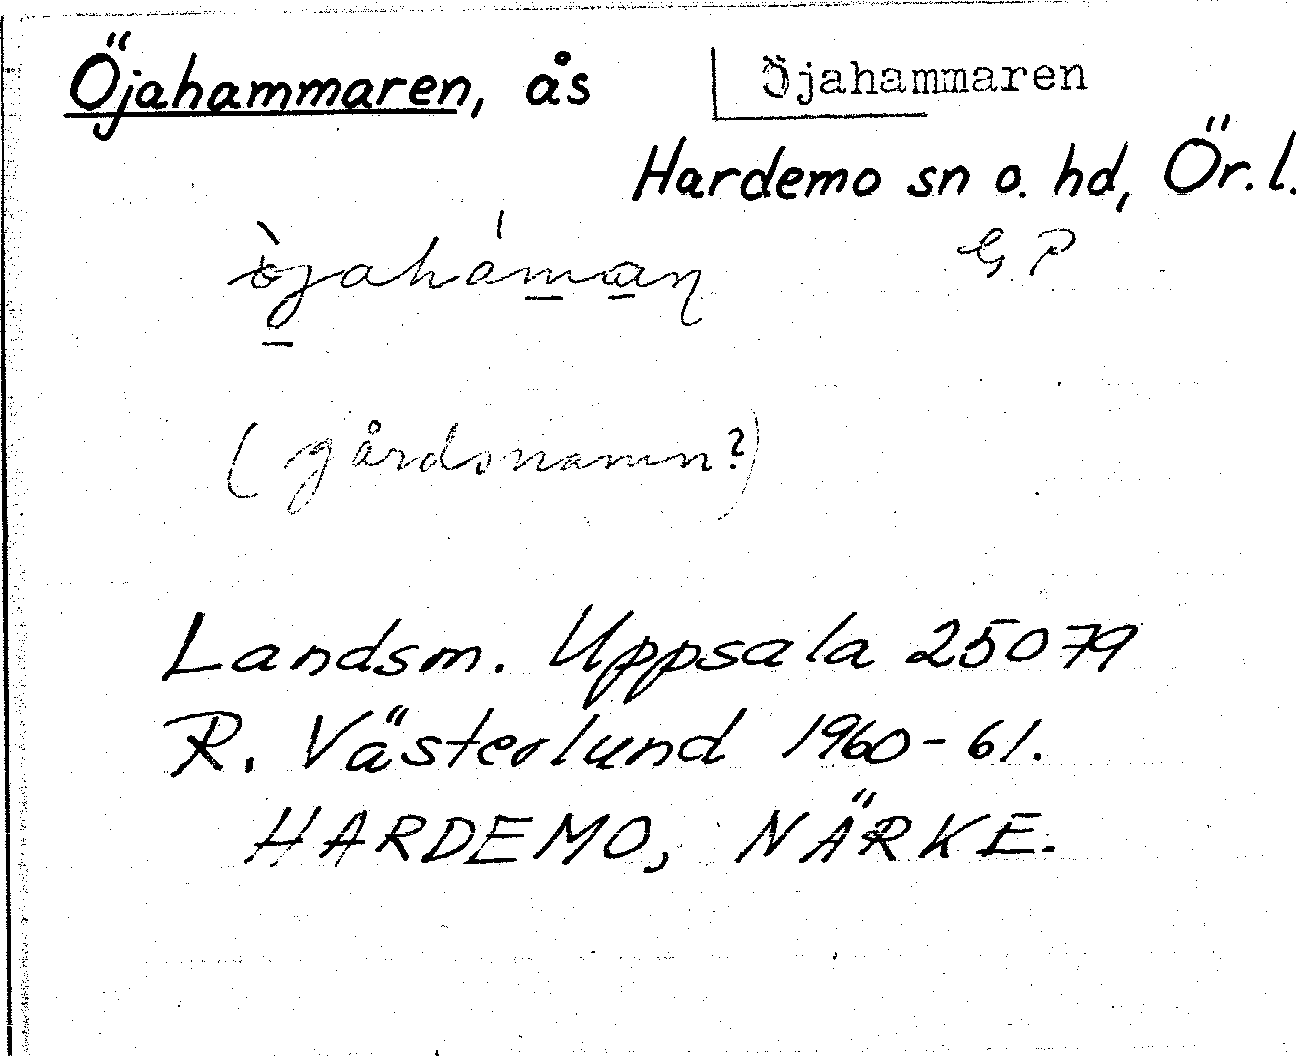 Öjahammaren, ås
Öjahammaren
Hardemo sn o. hd, Ör. l.
G. P
(gårdsnamn?)
Landsm. Uppsala 25079
R. Västerlund 1960-61.
HARDEMO, NÄRKE.